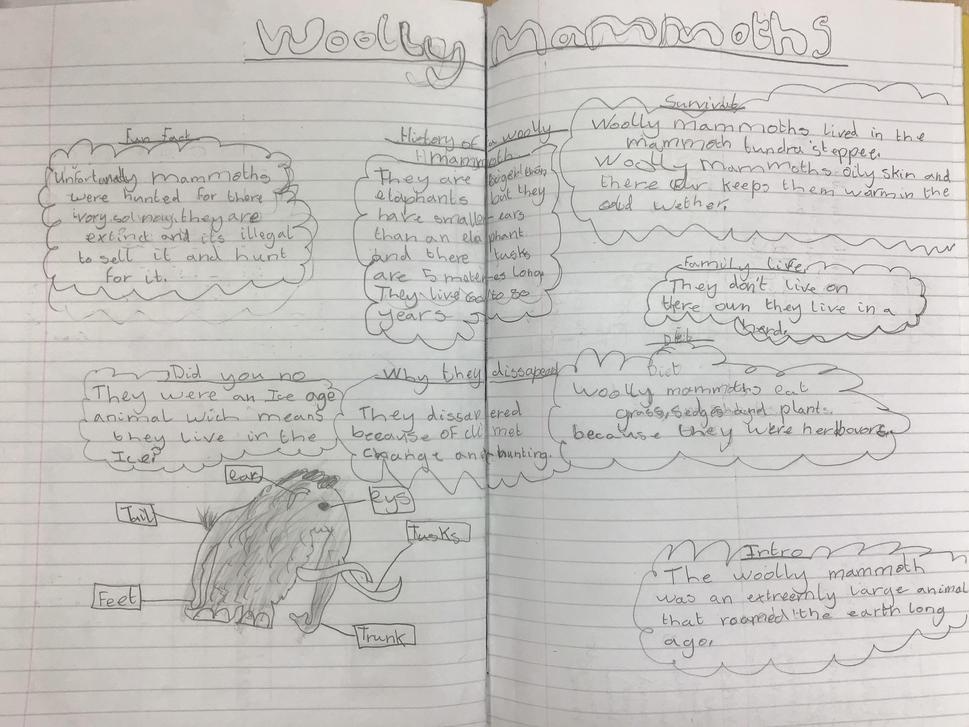 Woolly Mammoths
Fun Fact
Unfortunatly mammoths
were hunted for there
ivory so now they are
extinct and its illegal
to sell it and hunt
for it.
History of a woolly
mammoth
They are bigger than
elaphants but they
have smaller ears
than an elaphant
and there tusks
are 5 meteres long
They live 60 to 80
years
Survival
Woolly mammoths lived in the
mammoth tundra steppee.
Woolly Mammoths oily skin and
there fur keeps them warm in the
cold wether.
Family life
They don't live on
there own they live in a
herd.
Did you no
They were an Ice age
animal wich means
they live in the
Ice
Why they dissapeared
They dissapered
because of climet
change and hunting.
Diet
Woolly mammoths eat
grass, sedges and plant
because they were herbovors
ears
eys
Tail
Tusks
Feet
Trunk
Intro
The woolly mammoth
was an extreemly large animal
that roamed the earth long
ago.